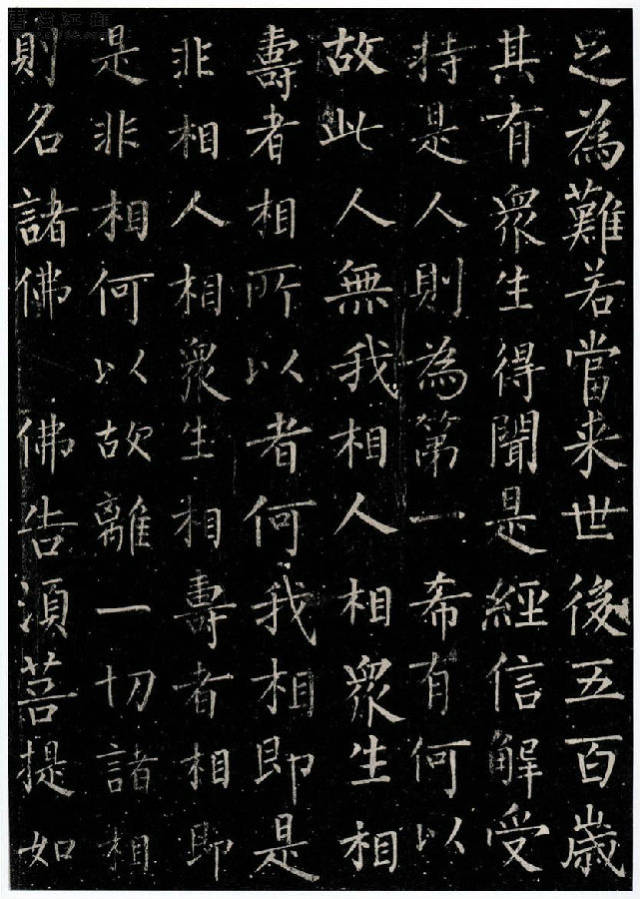 乏為難若當来世後五百歲
其有眾生得聞是經信解受
持是人則為第一希有何以
故此人無我相人相眾生相
壽者相所以者何我相即是
非相人相眾生相壽者相即
是非相何以故離一切諸相
則名諸佛 佛告須菩提如